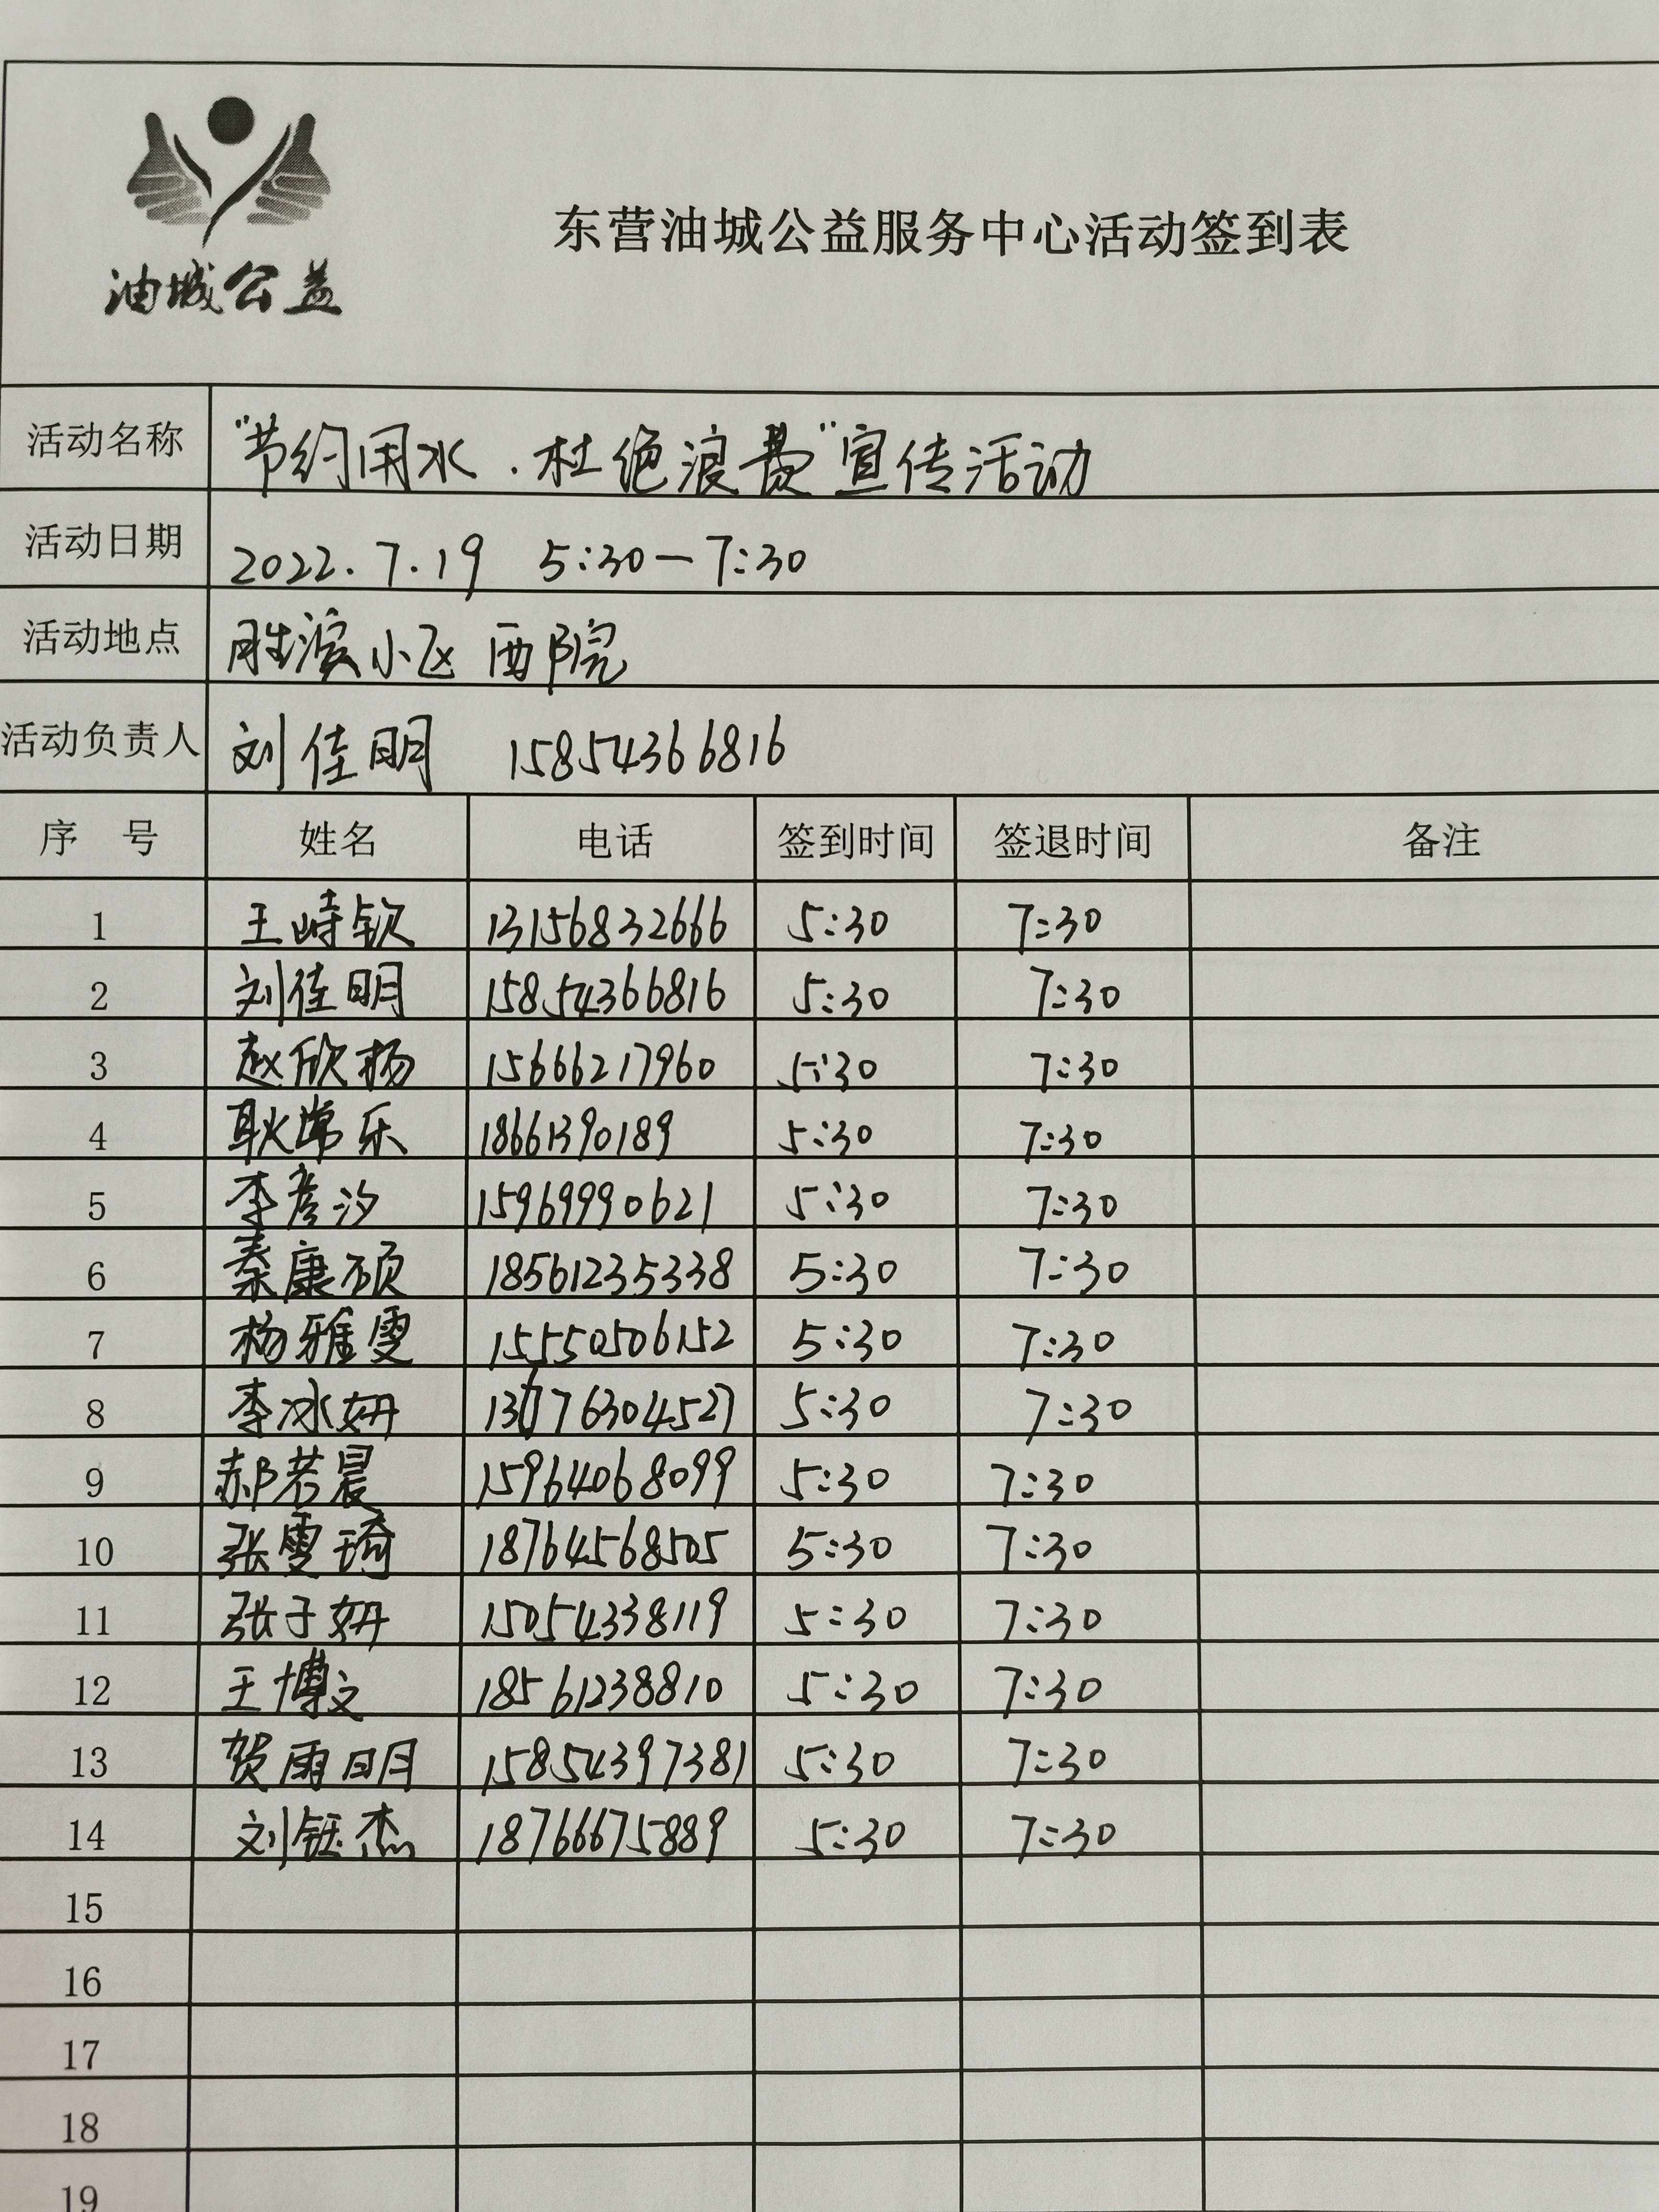 油城公益
东营油城公益服务中心活动签到表
活动名称 "节约用水.杜绝浪费"宣传活动
活动日期 2022.7.19 5:30—7:30
活动地点 胜滨小区 西院
活动负责人 刘佳明 15854366816
序 号 姓名 电话 签到时间 签退时间 备注
1 王峙钦 13156832666 5:30 7:30
2 刘佳明 15854366816 5:30 7:30
3 赵欣杨 15666217960 5:30 7:30
4 耿常乐 18661390189 5:30 7:30
5 李彦汐 15969990621 5:30 7:30
6 秦康硕 18561235338 5:30 7:30
7 杨雅雯 15550506152 5:30 7:30
8 李冰妍 5:30 7:30
9 郝若晨 15964068099 5:30 7:30
10 张雯琦 18764568505 5:30 7:30
11 张子妍 15054338119 5:30 7:30
12 王博文 18561238810 5:30 7:30
13 贺雨明 15854397381 5:30 7:30
14 刘钰杰 18766675889 5:30 7:30
15
16
17
18
19